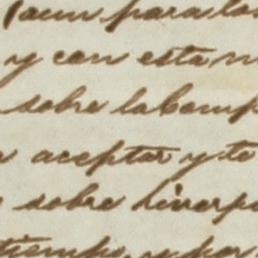 aun para las
y con esta m
sobre la Comp
aceptar y te
sobre Liverpo
tiempo, y por